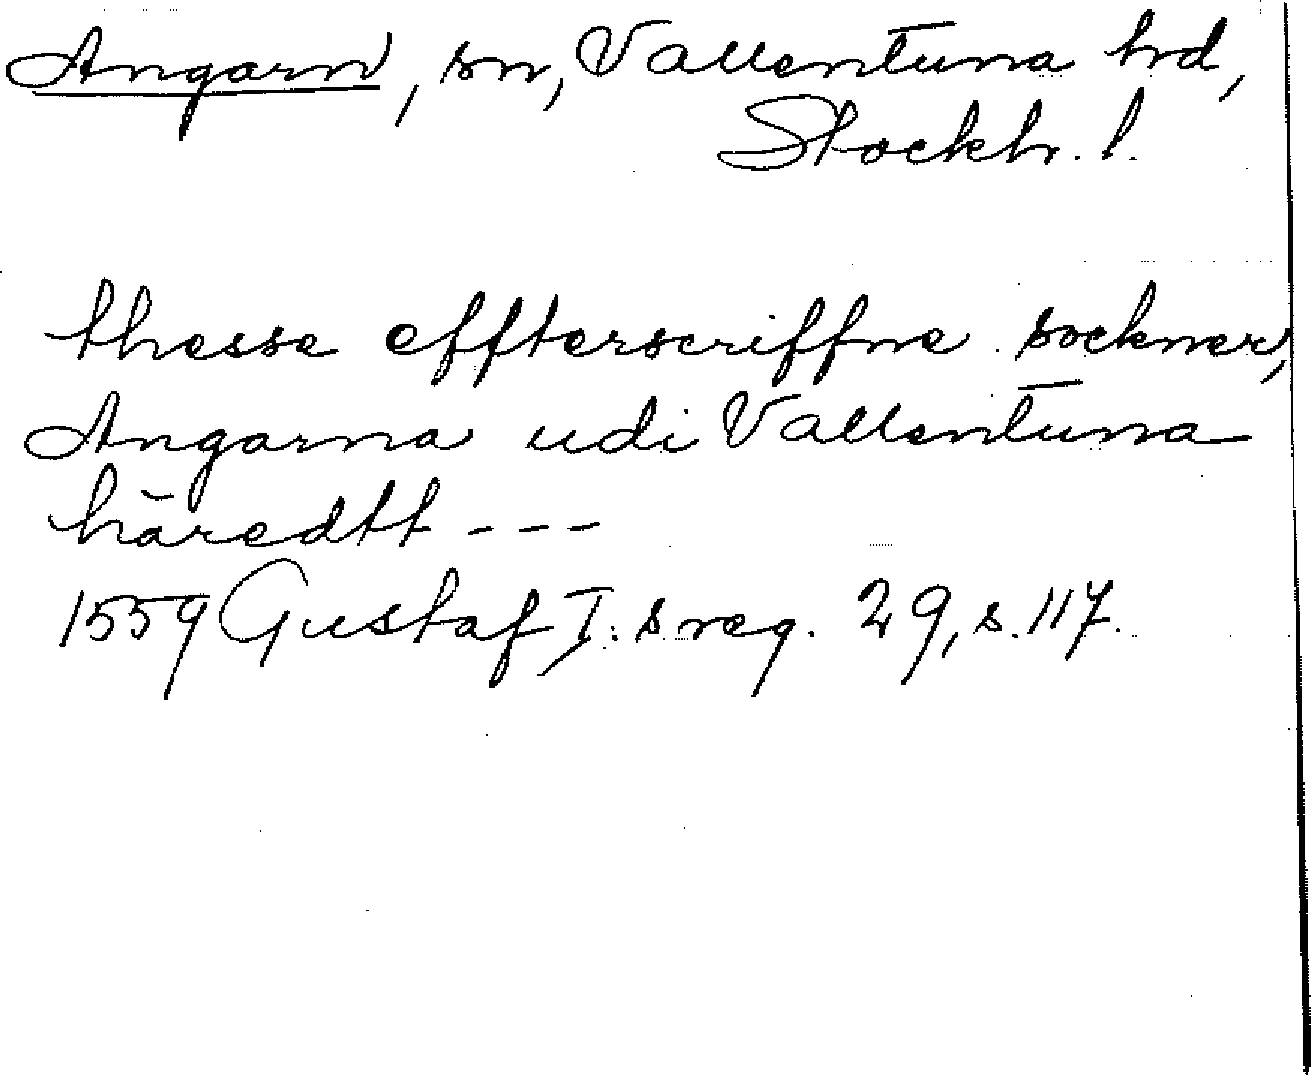 Angarn, sn, Vallentuna hd,
Stockh. l.
thesse effterscriffne sockner,
Angarna udi Vallentuna
häredtt - - -
1559 Gustaf I:s reg. 29, s. 117.